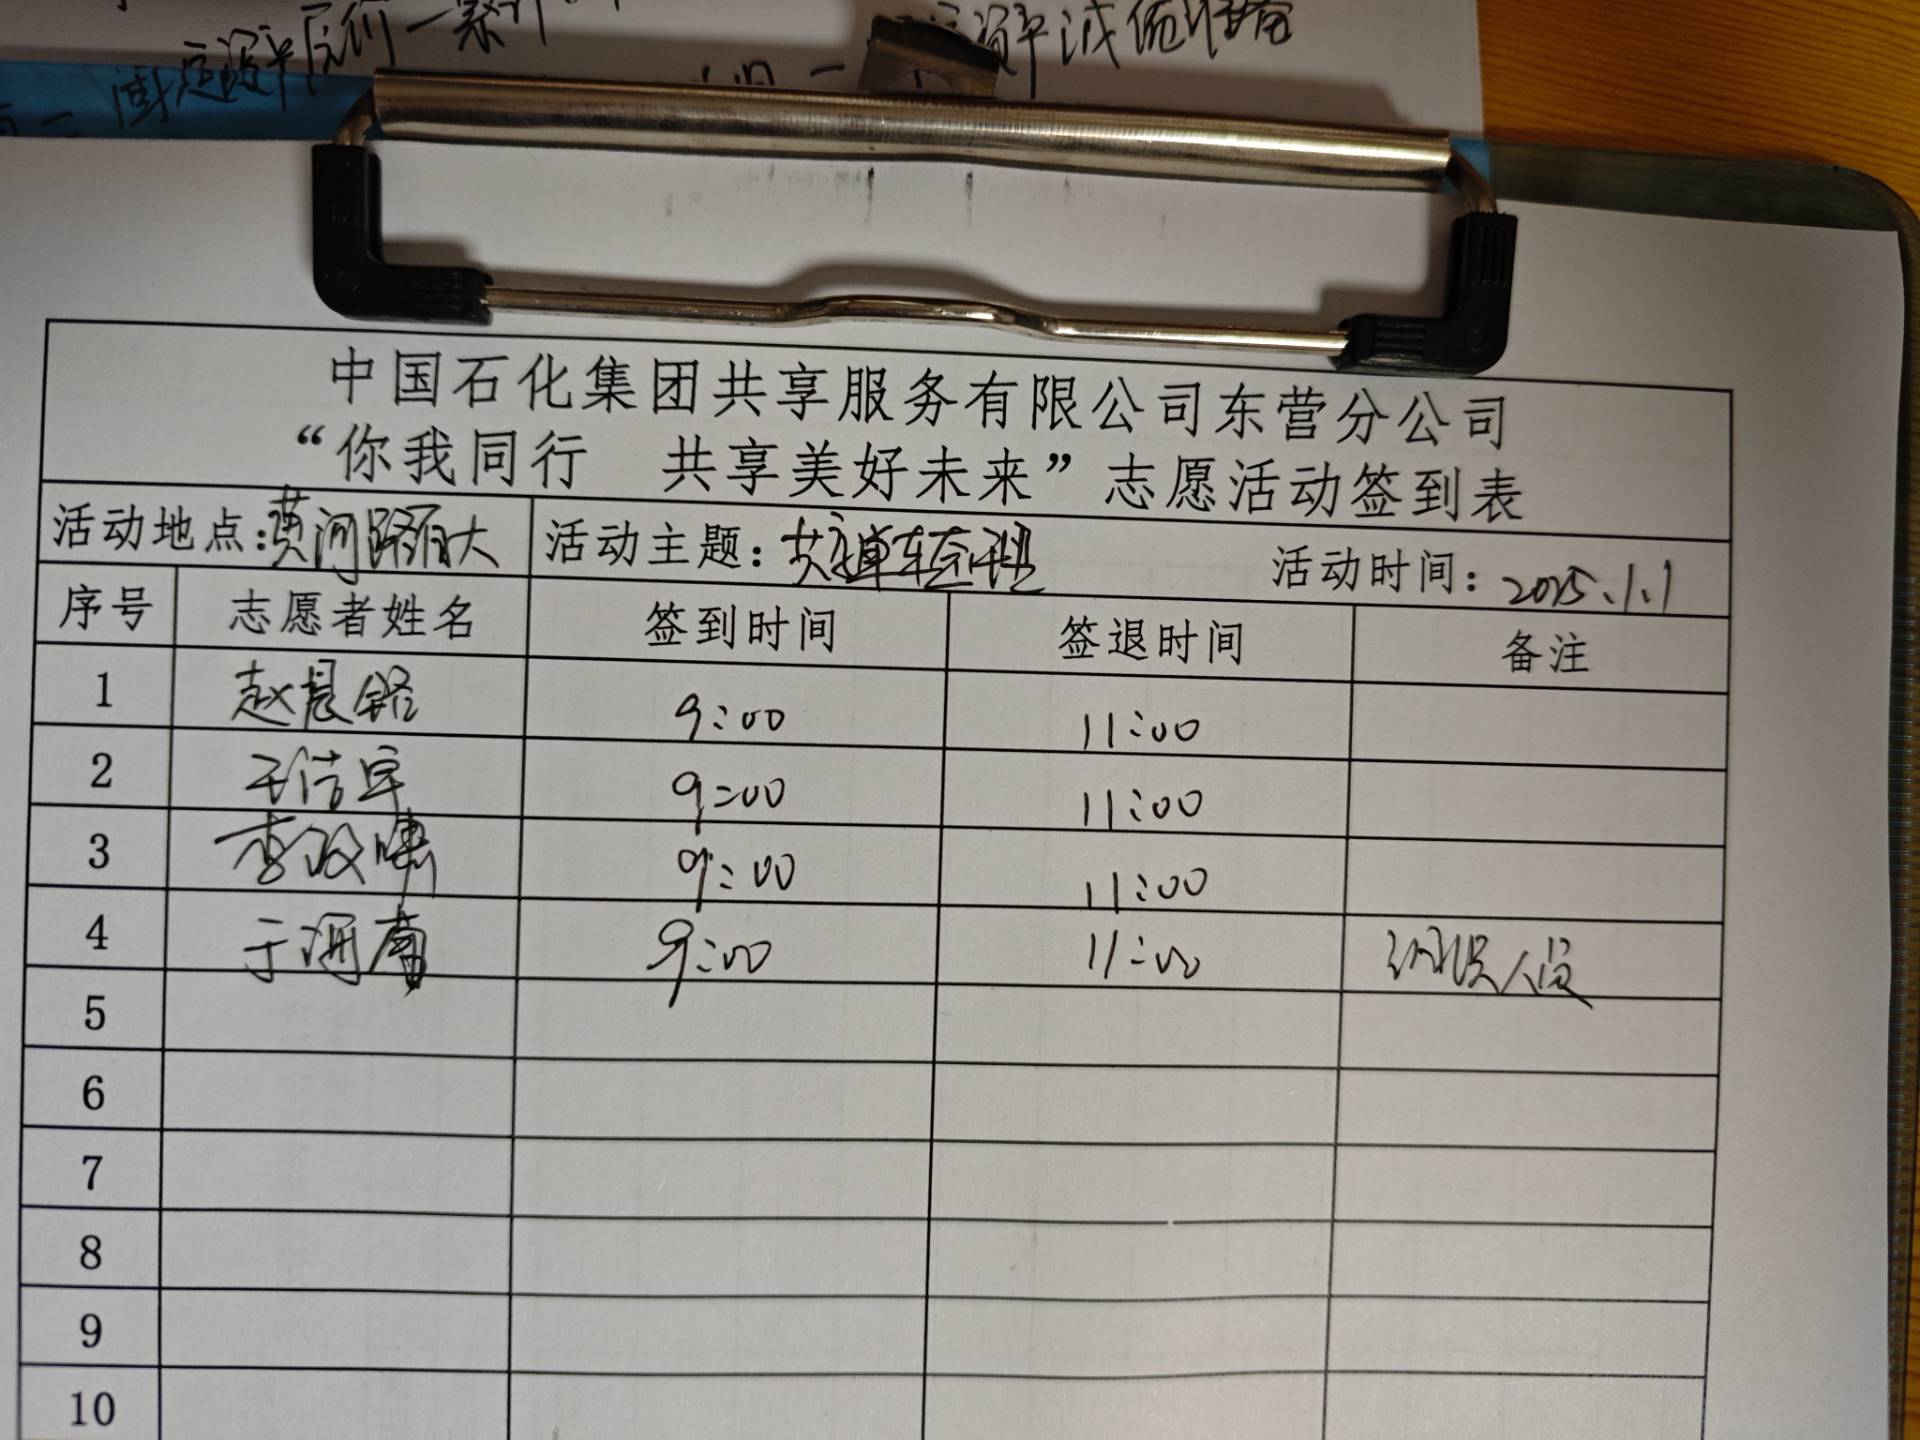 中国石化集团共享服务有限公司东营分公司
“你我同行 共享美好未来”志愿活动签到表
活动地点:黄河路百大 活动主题:共享单车 活动时间:2025.1.1
序号 志愿者姓名 签到时间 签退时间 备注
1 赵晨铭 9:00 11:00
2 王浩宇 9:00 11:00
3 李政 9:00 11:00
4 于 9:00 11:00 人员
5
6
7
8
9
10